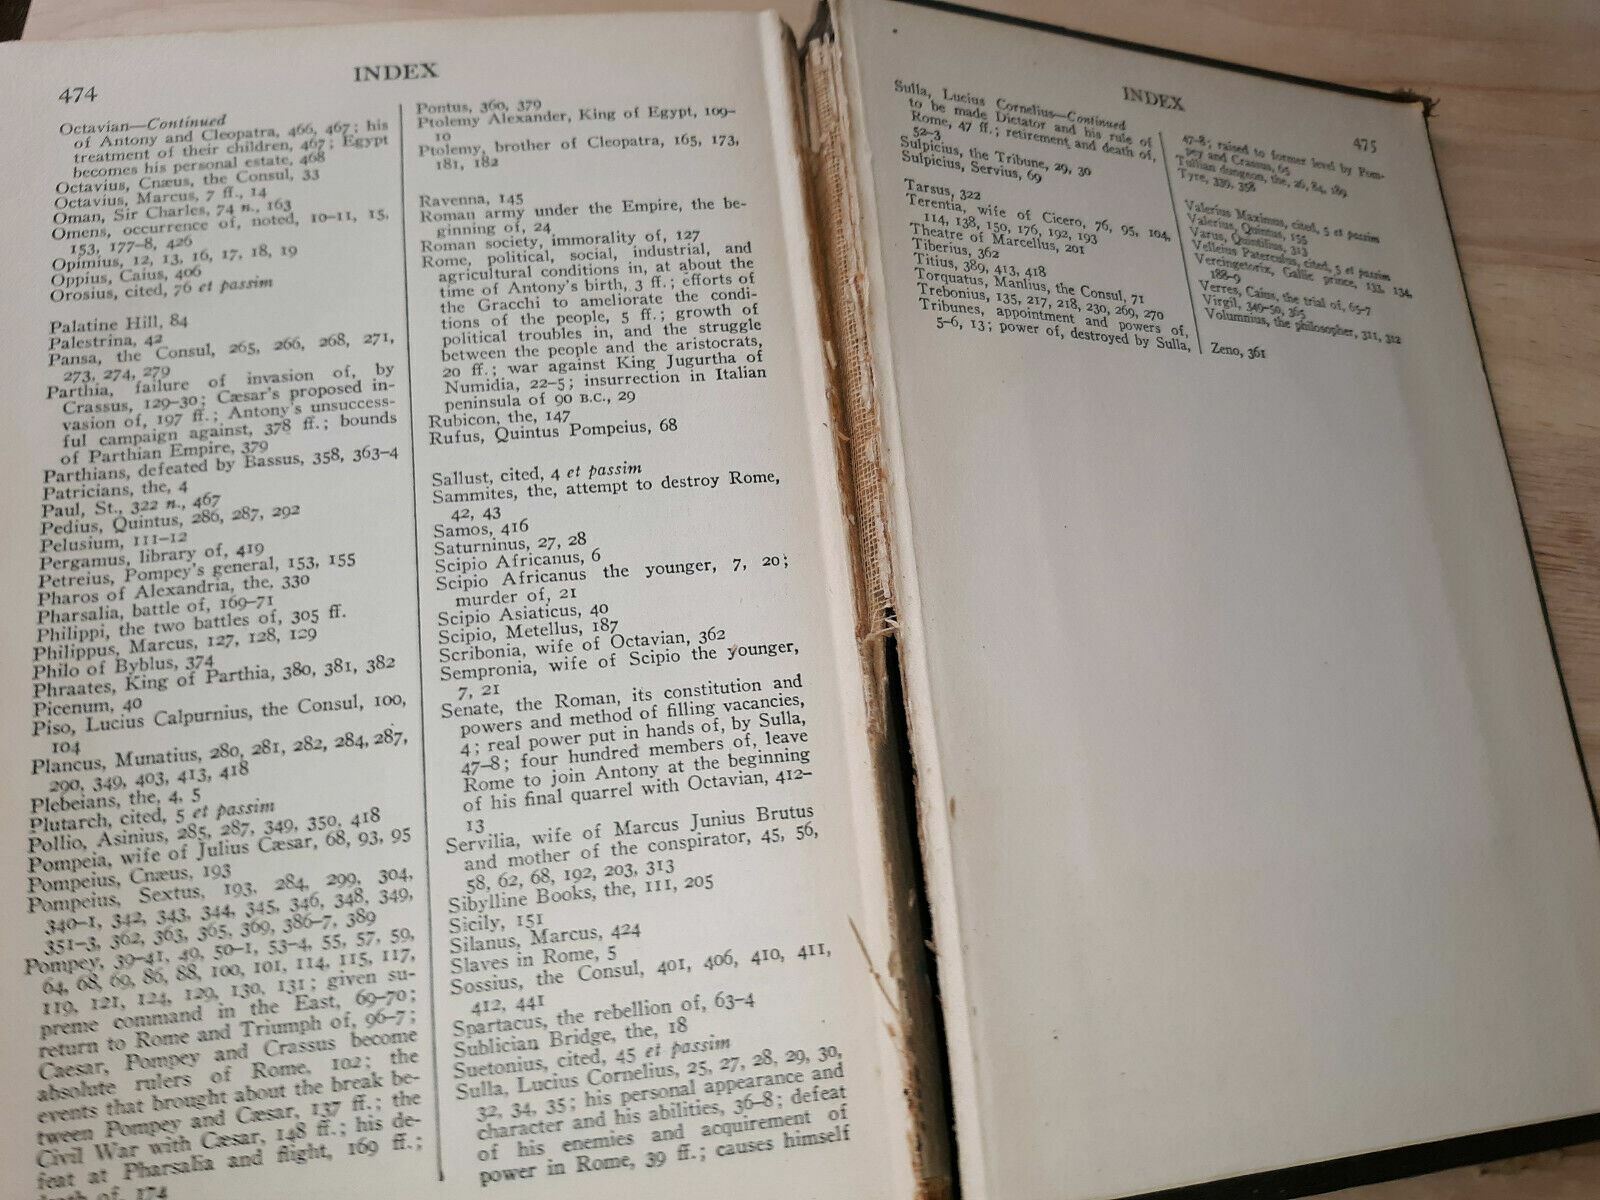 474
INDEX
Octavian—Continued
of Antony and Cleopatra, 466, 467; his
treatment of their children, 467; Egypt
becomes his personal estate, 468
Octavius, Cnæus, the Consul, 33
Octavius, Marcus, 7 ff., 14
Oman, Sir Charles, 74 n., 163
Omens, occurrence of, noted, 10–11, 15,
153, 177–8, 426
Opimius, 12, 13, 16, 17, 18, 19
Oppius, Caius, 406
Orosius, cited, 76 et passim
Palatine Hill, 84
Palestrina, 42
Pansa, the Consul, 265, 266, 268, 271,
273, 274, 279
Parthia, failure of invasion of, by
Crassus, 129–30; Cæsar's proposed in-
vasion of, 197 ff.; Antony's unsuccess-
ful campaign against, 378 ff.; bounds
of Parthian Empire, 379
Parthians, defeated by Bassus, 358, 363–4
Patricians, the, 4
Paul, St., 322 n., 467
Pedius, Quintus, 286, 287, 292
Pelusium, 111–12
Pergamus, library of, 419
Petreius, Pompey's general, 153, 155
Pharos of Alexandria, the, 330
Pharsalia, battle of, 169–71
Philippi, the two battles of, 305 ff.
Philippus, Marcus, 127, 128, 129
Philo of Byblus, 374
Phraates, King of Parthia, 380, 381, 382
Picenum, 40
Piso, Lucius Calpurnius, the Consul, 100,
104
Plancus, Munatius, 280, 281, 282, 284, 287,
290, 349, 403, 413, 418
Plebeians, the, 4, 5
Plutarch, cited, 5 et passim
Pollio, Asinius, 285, 287, 349, 350, 418
Pompeia, wife of Julius Cæsar, 68, 93, 95
Pompeius, Cnæus, 193
Pompeius, Sextus, 193, 284, 299, 304,
340–1, 342, 343, 344, 345, 346, 348, 349,
351–3, 362, 363, 365, 369, 386–7, 389
Pompey, 39–41, 49, 50–1, 53–4, 55, 57, 59,
64, 68, 69, 86, 88, 100, 101, 114, 115, 117,
119, 121, 124, 129, 130, 131; given su-
preme command in the East, 69–70;
return to Rome and Triumph of, 96–7;
Caesar, Pompey and Crassus become
absolute rulers of Rome, 102; the
events that brought about the break be-
tween Pompey and Cæsar, 137 ff.; the
Civil War with Cæsar, 148 ff.; his de-
feat at Pharsalia and flight, 169 ff.;
death of, 174
Pontus, 360, 379
Ptolemy Alexander, King of Egypt, 109–
10
Ptolemy, brother of Cleopatra, 165, 173,
181, 182
Ravenna, 145
Roman army under the Empire, the be-
ginning of, 24
Roman society, immorality of, 127
Rome, political, social, industrial, and
agricultural conditions in, at about the
time of Antony's birth, 3 ff.; efforts of
the Gracchi to ameliorate the condi-
tions of the people, 5 ff.; growth of
political troubles in, and the struggle
between the people and the aristocrats,
20 ff.; war against King Jugurtha of
Numidia, 22–5; insurrection in Italian
peninsula of 90 B.C., 29
Rubicon, the, 147
Rufus, Quintus Pompeius, 68
Sallust, cited, 4 et passim
Sammites, the, attempt to destroy Rome,
42, 43
Samos, 416
Saturninus, 27, 28
Scipio Africanus, 6
Scipio Africanus the younger, 7, 20;
murder of, 21
Scipio Asiaticus, 40
Scipio, Metellus, 187
Scribonia, wife of Octavian, 362
Sempronia, wife of Scipio the younger,
7, 21
Senate, the Roman, its constitution and
powers and method of filling vacancies,
4; real power put in hands of, by Sulla,
47–8; four hundred members of, leave
Rome to join Antony at the beginning
of his final quarrel with Octavian, 412–
13
Servilia, wife of Marcus Junius Brutus
and mother of the conspirator, 45, 56,
58, 62, 68, 192, 203, 313
Sibylline Books, the, 111, 205
Sicily, 151
Silanus, Marcus, 424
Slaves in Rome, 5
Sossius, the Consul, 401, 406, 410, 411,
412, 441
Spartacus, the rebellion of, 63–4
Sublician Bridge, the, 18
Suetonius, cited, 45 et passim
Sulla, Lucius Cornelius, 25, 27, 28, 29, 30,
32, 34, 35; his personal appearance and
character and his abilities, 36–8; defeat
of his enemies and acquirement of
power in Rome, 39 ff.; causes himself
INDEX
475
Sulla, Lucius Cornelius—Continued
to be made Dictator and his rule of
Rome, 47 ff.; retirement and death of,
52–3
Sulpicius, the Tribune, 29, 30
Sulpicius, Servius, 69
Tarsus, 322
Terentia, wife of Cicero, 76, 95, 104,
114, 138, 150, 176, 192, 193
Theatre of Marcellus, 201
Tiberius, 362
Titius, 389, 413, 418
Torquatus, Manlius, the Consul, 71
Trebonius, 135, 217, 218, 230, 269, 270
Tribunes, appointment and powers of,
5–6, 13; power of, destroyed by Sulla,
47–8; raised to former level by Pom-
pey and Crassus, 65
Tullian dungeon, the, 26, 84, 189
Tyre, 339, 358
Valerius Maximus, cited, 5 et passim
Valerius, Quintus, 155
Varus, Quintilius, 313
Velleius Paterculus, cited, 5 et passim
Vercingetorix, Gallic prince, 133, 134,
188–9
Verres, Caius, the trial of, 65–7
Virgil, 349–50, 365
Volumnius, the philosopher, 311, 312
Zeno, 361